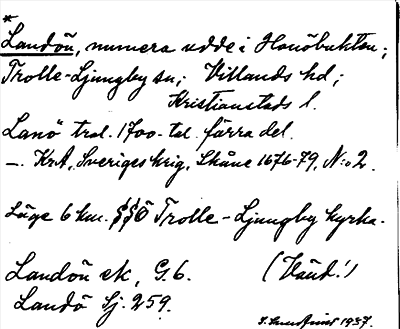 *
Landön, numera udde i Hanöbukten;
Trolle-Ljungby sn; Villands hd;
Kristianstads l.
Lanö trol. 1700-tal. förra del.
—. KrA, Sveriges krig, Skåne 1676-79, N:o 2.
Läge 6 km. SSÖ Trolle-Ljungby kyrka.
Landön ek, G.6. (Händ.!)
Landö Sj. 259.
1937.